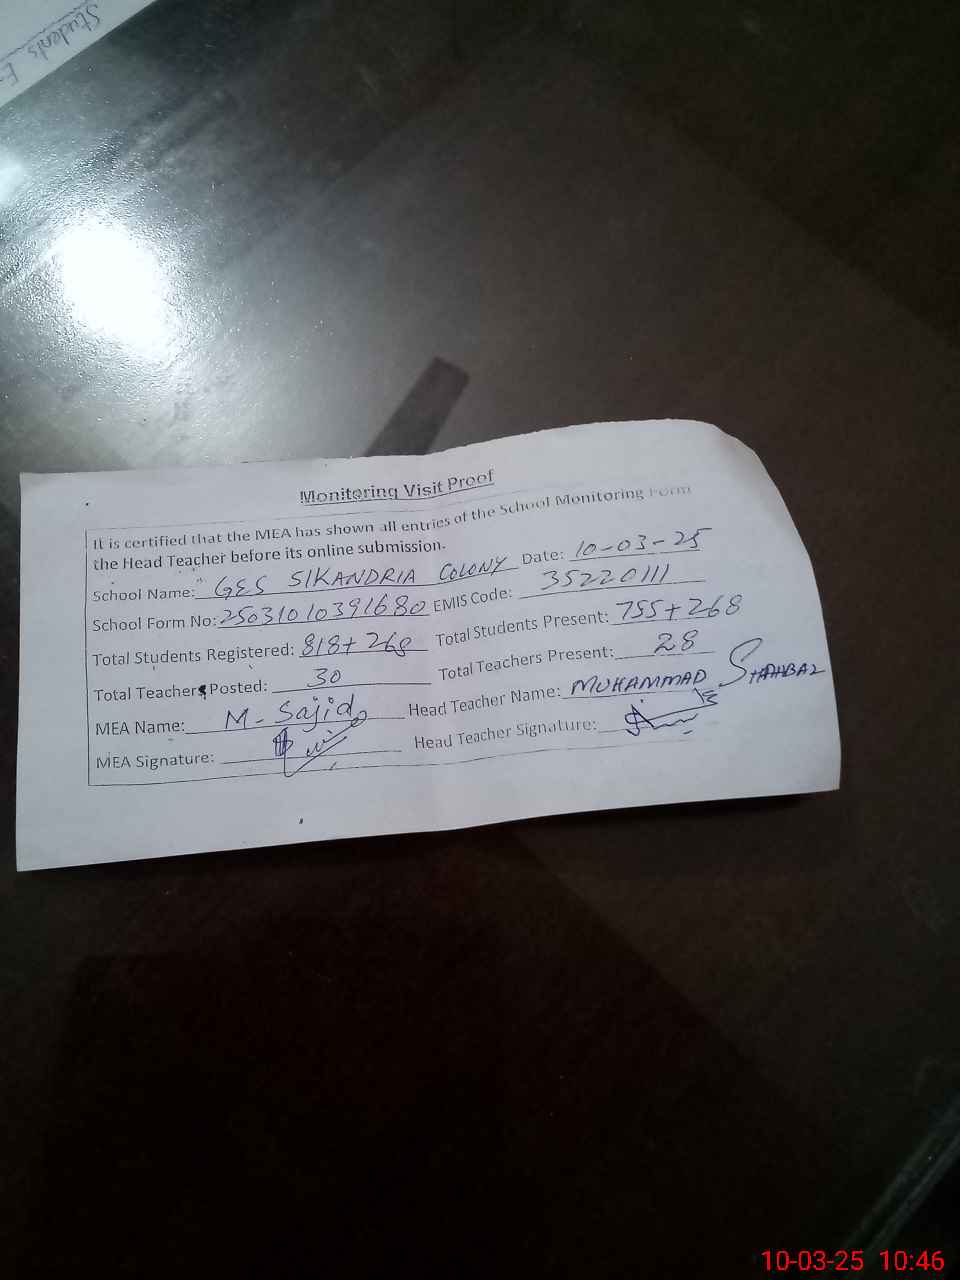 Students
Monitoring Visit Proof
It is certified that the MEA has shown all entries of the School Monitoring Form
the Head Teacher before its online submission.
School Name: GES SIKANDRIA COLONY Date: 10-03-25
School Form No: 25031010391680 EMIS Code: 35220111
Total Students Registered: 818+268 Total Students Present: 755+268
Total Teachers Posted: 30 Total Teachers Present: 28
MEA Name: M-Sajid Head Teacher Name: MUHAMMAD SHAHBAZ
MEA Signature: Head Teacher Signature:
10-03-25 10:46